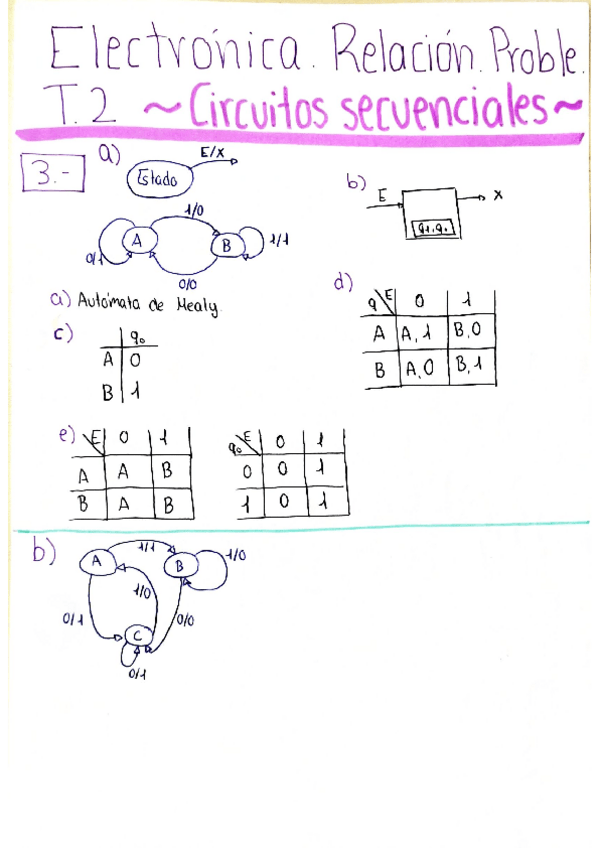 Electrónica. Relación. Proble.
T.2 ~Circuitos secuenciales~
3.-
a)
E/X
Estado
1/0
A
B
0/1
1/1
0/0
b)
E
X
q1.q0
a) Autómata de Mealy.
c)
q0
A 0
B 1
d)
q E 0 1
A A,1 B,0
B A,0 B,1
e)
E 0 1
A A B
B A B
q0 E 0 1
0 0 1
1 0 1
b)
1/1
A
B
1/0
1/0
0/1
0/0
C
0/1